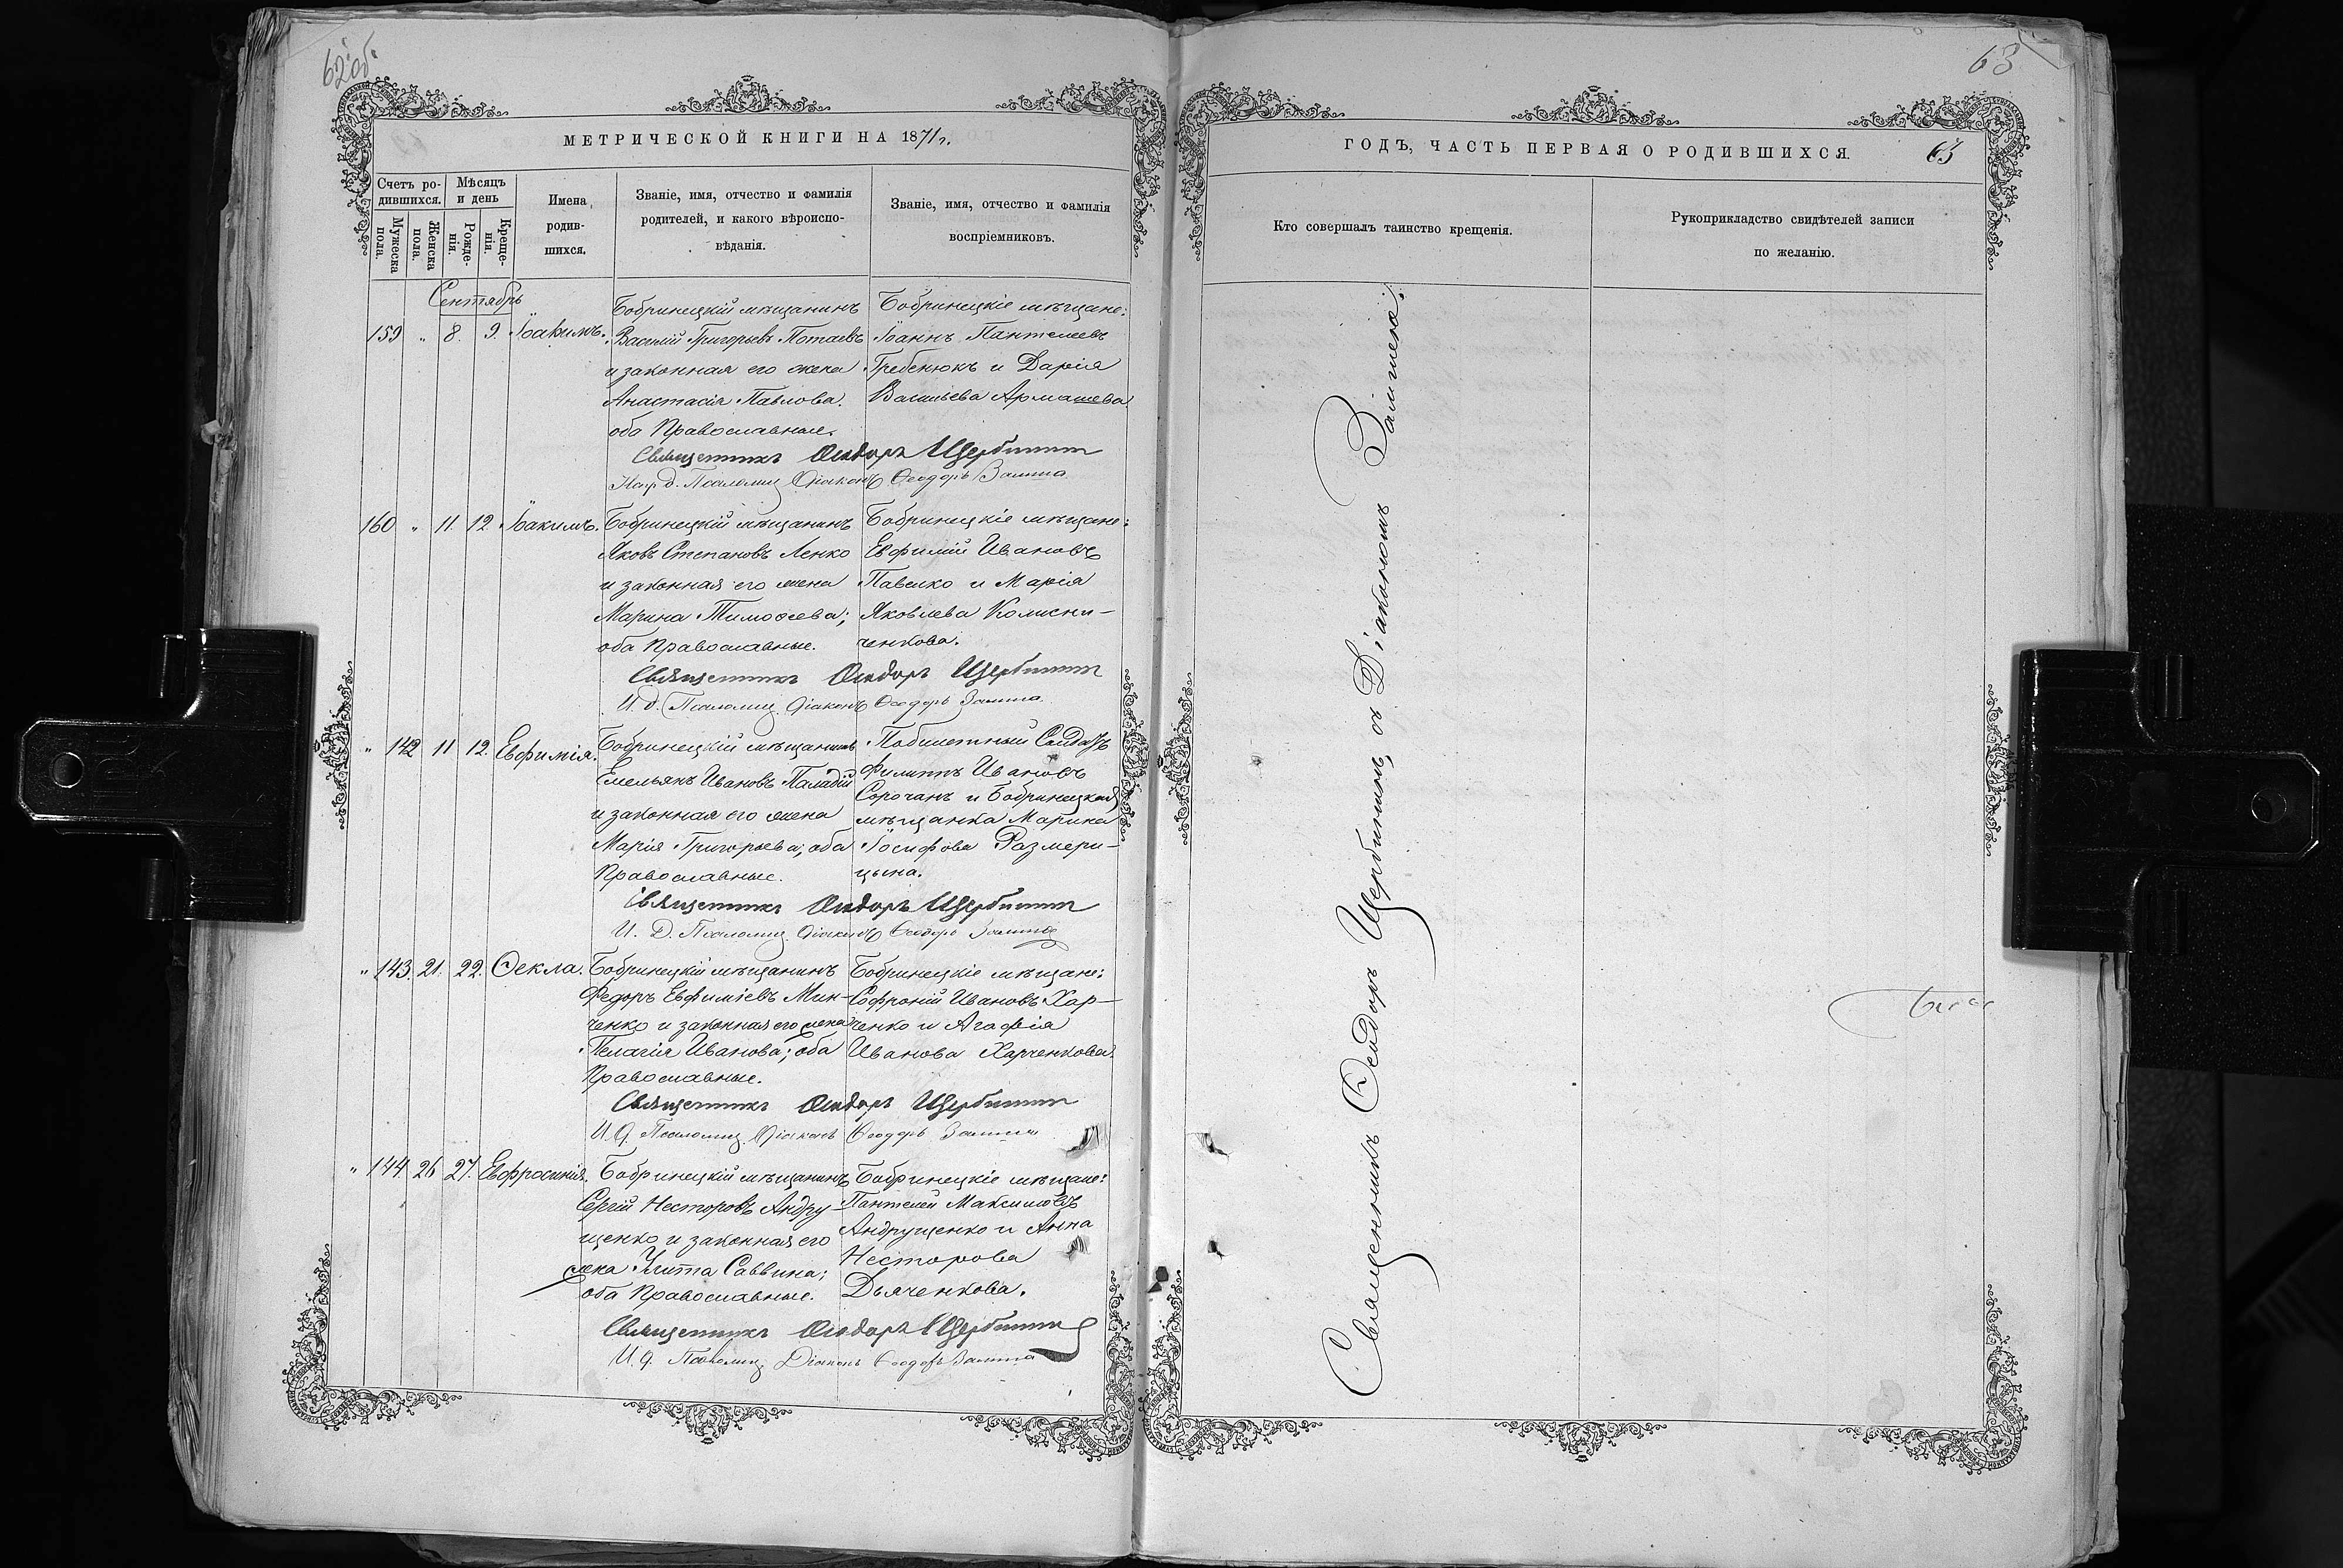 62 об.
МЕТРИЧЕСКОЙ КНИГИ НА 1871 г.
Счетъ ро-
дившихся.
Мѣсяцъ
и день
Мужеска
пола.
Женска
пола.
Рожде-
нія.
Креще-
нія.
Имена
родив-
шихся.
Званіе, имя, отчество и фамилія
родителей, и какого вѣроиспо-
вѣданія.
Званіе, имя, отчество и фамилія
воспріемниковъ.
Сентябрь
159 " 8. 9. Іоакимъ.
Бобринецкій мѣщанинъ
Василій Григорьевъ Потаевъ
и законная его жена
Анастасія Павлова.
оба Православные.
Бобринецкіе мѣщане:
Іоаннъ Пантелеевъ
Гребенюкъ и Дарія
Васильева Армашева
Священникъ Ѳеодоръ Щербининъ
Псаломщ. Діаконъ Ѳеодоръ
160 " 11. 12 Іоакимъ.
Бобринецкій мѣщанинъ
Яковъ Степановъ Ленко
и законная его жена
Марина Тимоѳеева;
оба Православные.
Бобринецкіе мѣщане:
Евфимій Ивановъ
Павелко и Марія
Яковлева Колисни-
ченкова.
Священникъ Ѳеодоръ Щербининъ
И. д. Псаломщ. Діаконъ Ѳеодоръ
" 142 11 12. Евфимія.
Бобринецкій мѣщанинъ
Емельянъ Ивановъ Паладій
и законная его жена
Марія Григорьева; оба
Православные.
Побилетный Солдатъ
Филиппъ Ивановъ
Сорочанъ и Бобринецкая
мѣщанка Марина
Іосифова Размери-
цына.
Священникъ Ѳеодоръ Щербининъ
И. Д. Псаломщ. Діаконъ Ѳеодоръ
" 143. 21. 22. Ѳекла.
Бобринецкій мѣщанинъ
Федоръ Евфиміевъ Мин-
ченко и законная его жена
Пелагія Иванова; оба
Православные.
Бобринецкіе мѣщане:
Софроній Ивановъ Хар-
ченко и Агафія
Иванова Харченкова.
Священникъ Ѳеодоръ Щербининъ
И. д. Псаломщ. Діаконъ Ѳеодоръ
" 144. 26 27. Евфросинія.
Бобринецкій мѣщанинъ
Сергій Несторовъ Андру-
щенко и законная его
жена Улита Саввина;
оба Православные.
Бобринецкіе мѣщане:
Пантелей Максимовъ
Андрущенко и Анна
Несторова
Дьяченкова.
Священникъ Ѳеодоръ Щербининъ
И. д. Псаломщ. Діаконъ Ѳеодоръ
63
ГОДЪ, ЧАСТЬ ПЕРВАЯ О РОДИВШИХСЯ.
63
Кто совершалъ таинство крещенія.
Рукоприкладство свидѣтелей записи
по желанію.
Священникъ Ѳеодоръ Щербининъ, съ Діакономъ